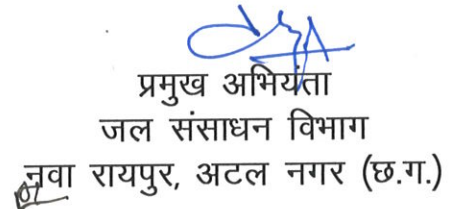 प्रमुख अभियंता
जल संसाधन विभाग
नवा रायपुर, अटल नगर (छ.ग.)